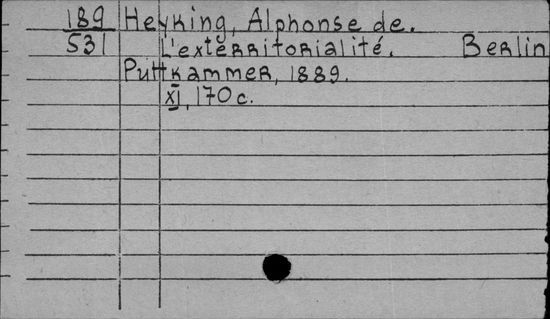 189 Heyking, Alphonse de.
531 L'exterritorialité. Berlin
Puttkammer, 1889.
XI, 170 c.